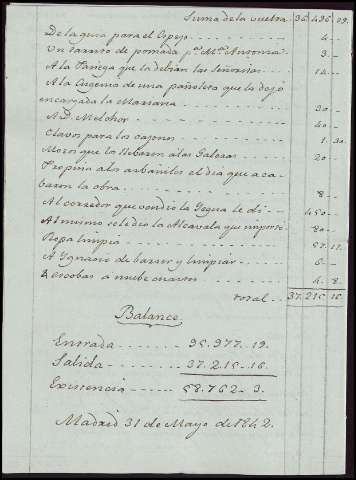 Suma de la vuelta 36,496..09.
De la guia para el Espejo 4..
Un tarrito de pomada pa. Ma. Antonia 3..
A la Fariega que la debian las Señoritas 14..
A la Eugenia de una pañoleta que la dejó
encargada la Mariana 30..
A D. Melchor 40..
Clavos para los cajones 1. 30.
Mozos que la llebaron a las Galeras 20..
Propina a los arbaniles el dia que aca-
baron la obra 8..
Al corredor que vendió la Yegua le di 450..
Al mismo se le dio la Alcavala que importó 80..
Ropa limpia 57. 11.
A Ygnacio de barrer y limpiar 6..
4 escobas a nuebe cuartos 4.. 8.
Total 37.215. 16.
Balance
Entrada 95.977. 19.
Salida 37.215. 16.
Existencia 58.762. 3.
Madrid 31 de Mayo de 1842.